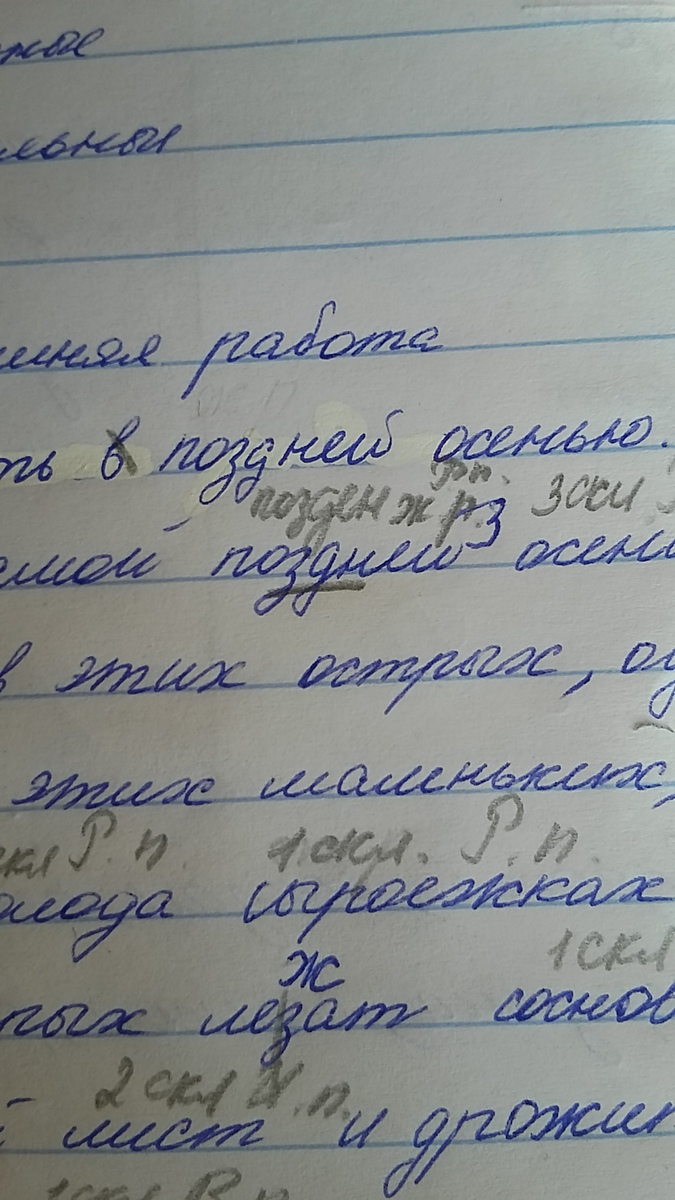 льный
работа
ть в поздней осенью.
позден ж р. Р.п. з 3 скл
поздней осени
в этих острых,
этих маленьких,
скл Р. п. 1 скл. Р. п.
олода сыроежках
ж 1 скл
рых лезат соснов
2 скл И.п.
лист и дрожит
1 скл Р.п.